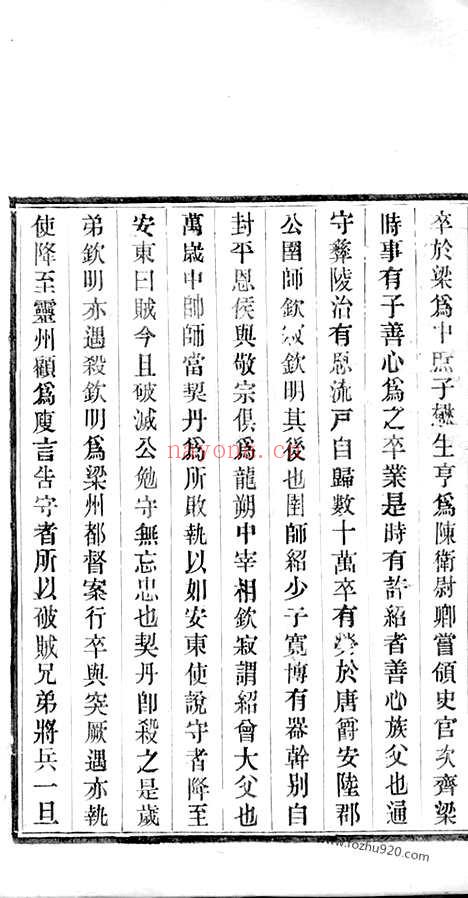 卒於梁爲中庶子懋生亨爲陳衛尉卿嘗領史官次齊梁
時事有子善心爲之卒業是時有許紹者善心族父也通
守彝陵治有恩流戸自歸數十萬卒有勞於唐爵安陸郡
公圉師欽寂欽明其後也圉師紹少子寬博有器幹別自
封平恩侯與敬宗俱爲龍朔中宰相欽寂謂紹曾大父也
萬歲中帥師當契丹爲所敗執以如安東使說守者降至
安東曰賊今且破滅公勉守無忘忠也契丹卽殺之是歲
弟欽明亦遇殺欽明爲梁州都督案行卒與突厥遇亦執
使降至靈州顧爲廋言告守者所以破賊兄弟將兵一旦
nayona.cn
www.rozhu920.com